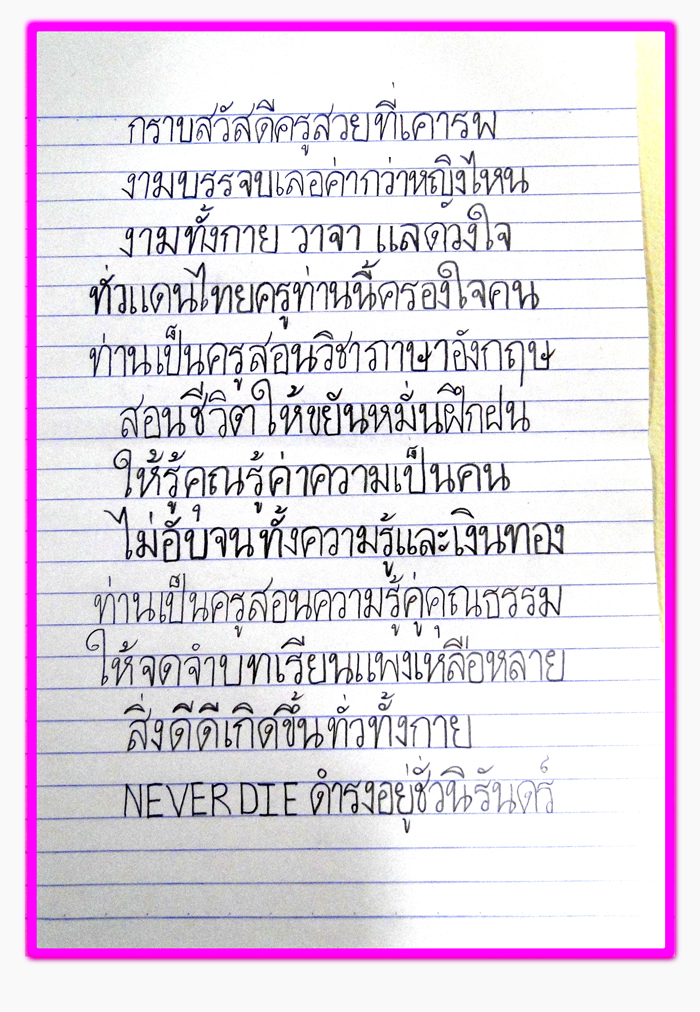 กราบสวัสดีครูสวยที่เคารพ
งามบรรจบเลอค่ากว่าหญิงไหน
งามทั้งกาย วาจา แลดวงใจ
ทั่วแดนไทยครูท่านนี้ครองใจคน
ท่านเป็นครูสอนวิชาภาษาอังกฤษ
สอนชีวิตให้ขยันหมั่นฝึกฝน
ให้รู้คุณรู้ค่าความเป็นคน
ไม่อับจนทั้งความรู้และเงินทอง
ท่านเป็นครูสอนความรู้คู่คุณธรรม
ให้จดจำบทเรียนแพงเหลือหลาย
สิ่งดีดีเกิดขึ้นทั่วทั้งกาย
NEVER DIE ดำรงอยู่ชั่วนิรันดร์